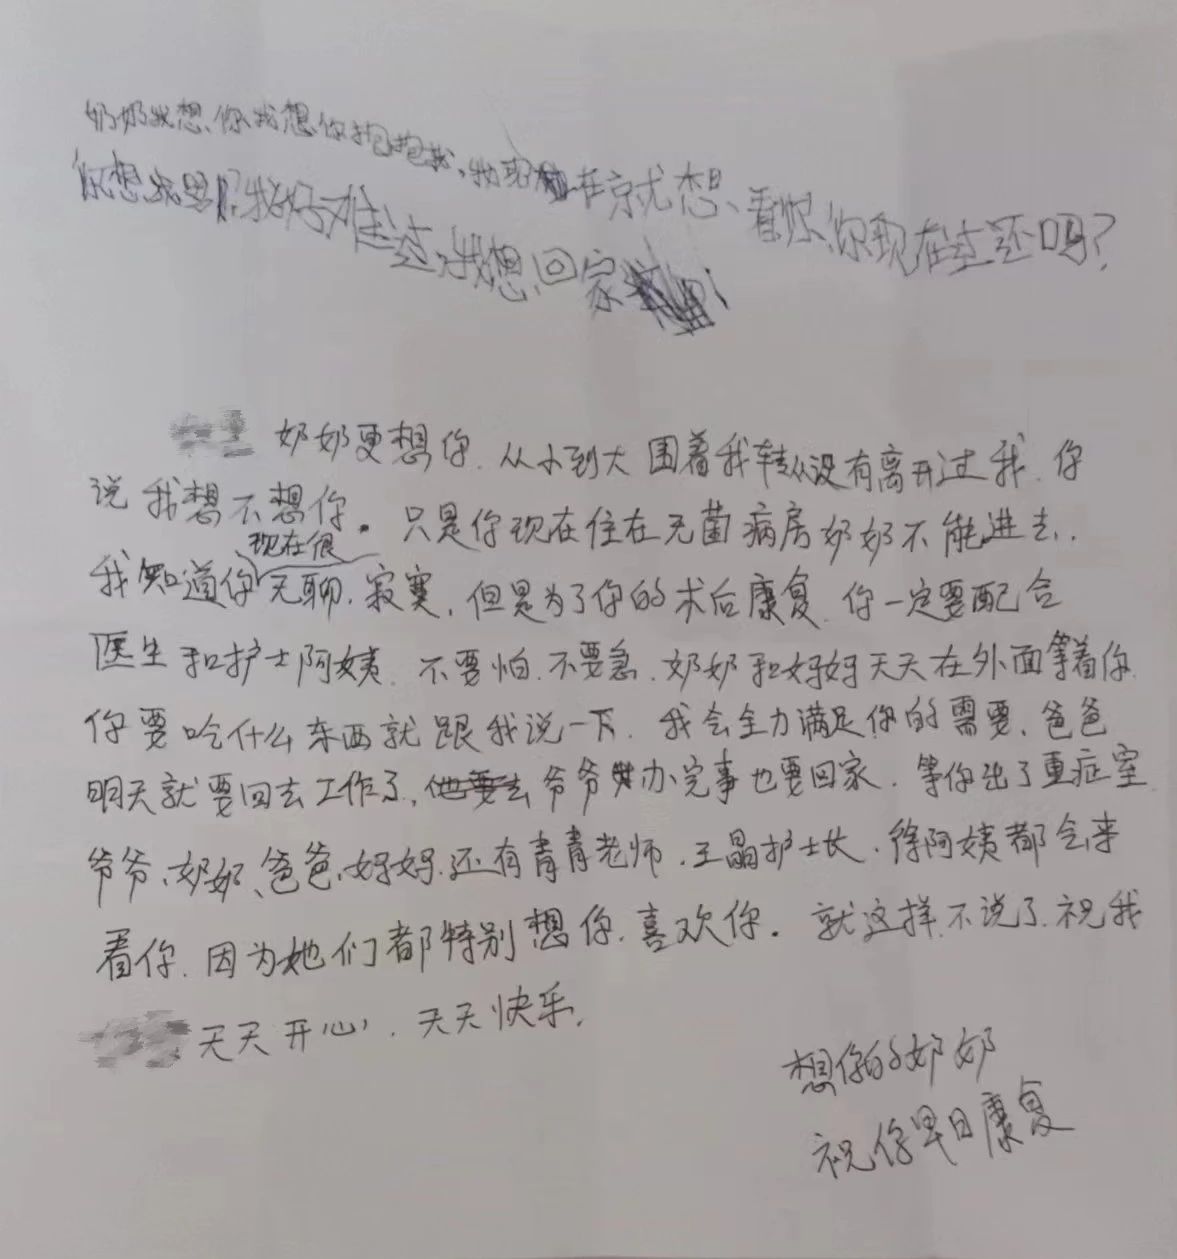 奶奶我想你我想你抱抱我,我现在就想看你,你现在过还吗?
你想我吗?我好难过,我想回家
奶奶更想你.从小到大围着我转从没有离开过我.你
说我想不想你。只是你现在住在无菌病房奶奶不能进去..
我知道你现在很无聊.寂寞,但是为了你的术后康复.你一定要配合
医生和护士阿姨.不要怕.不要急.奶奶和妈妈天天在外面等着你.
你要吃什么东西就跟我说一下.我会全力满足你的需要.爸爸
明天就要回去工作了,爷爷办完事也要回家.等你出了重症室.
爷爷、奶奶、爸爸、妈妈.还有青青老师.王晶护士长.徐阿姨都会来
看你.因为她们都特别想你.喜欢你。就这样.不说了.祝我
天天开心,天天快乐.
想你的奶奶
祝你早日康复